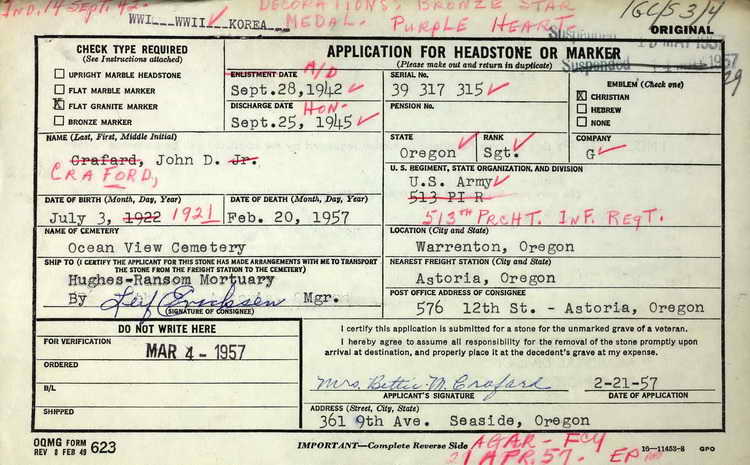 IND. 14 SEPT. 42.
DECORATIONS; BRONZE STAR
MEDAL. PURPLE HEART.
WWI___WWII___KOREA___
ORIGINAL
Suspended
Suspended
CHECK TYPE REQUIRED
(See Instructions attached)
UPRIGHT MARBLE HEADSTONE
FLAT MARBLE MARKER
X FLAT GRANITE MARKER
BRONZE MARKER
APPLICATION FOR HEADSTONE OR MARKER
(Please make out and return in duplicate)
ENLISTMENT DATE A/D
Sept.28,1942
DISCHARGE DATE HON-
Sept.25, 1945
SERIAL No.
39 317 315
PENSION No.
EMBLEM (Check one)
X CHRISTIAN
HEBREW
NONE
NAME (Last, First, Middle Initial)
Crafard, John D. Jr.
CRAFORD,
STATE
Oregon
RANK
Sgt.
COMPANY
G
U. S. REGIMENT, STATE ORGANIZATION, AND DIVISION
U.S. Army
513 PI R
513TH PRCHT. INF. REGT.
DATE OF BIRTH (Month, Day, Year)
July 3, 1922 1921
DATE OF DEATH (Month, Day, Year)
Feb. 20, 1957
NAME OF CEMETERY
Ocean View Cemetery
LOCATION (City and State)
Warrenton, Oregon
SHIP TO (I CERTIFY THE APPLICANT FOR THIS STONE HAS MADE ARRANGEMENTS WITH ME TO TRANSPORT
THE STONE FROM THE FREIGHT STATION TO THE CEMETERY)
Hughes-Ransom Mortuary
By Leif Ericksen Mgr.
(SIGNATURE OF CONSIGNEE)
NEAREST FREIGHT STATION (City and State)
Astoria, Oregon
POST OFFICE ADDRESS OF CONSIGNEE
576 12th St. - Astoria, Oregon
DO NOT WRITE HERE
FOR VERIFICATION
MAR 4 - 1957
ORDERED
B/L
SHIPPED
I certify this application is submitted for a stone for the unmarked grave of a veteran.
I hereby agree to assume all responsibility for the removal of the stone promptly upon
arrival at destination, and properly place it at the decedent's grave at my expense.
Mrs. Bettie M. Crafard
2-21-57
APPLICANT'S SIGNATURE
DATE OF APPLICATION
ADDRESS (Street, City, State)
361 9th Ave. Seaside, Oregon
OQMG FORM
REV 8 FEB 49 623
IMPORTANT—Complete Reverse Side
AGAR - FCY
21 APR. 57.
16—11453-8 GPO